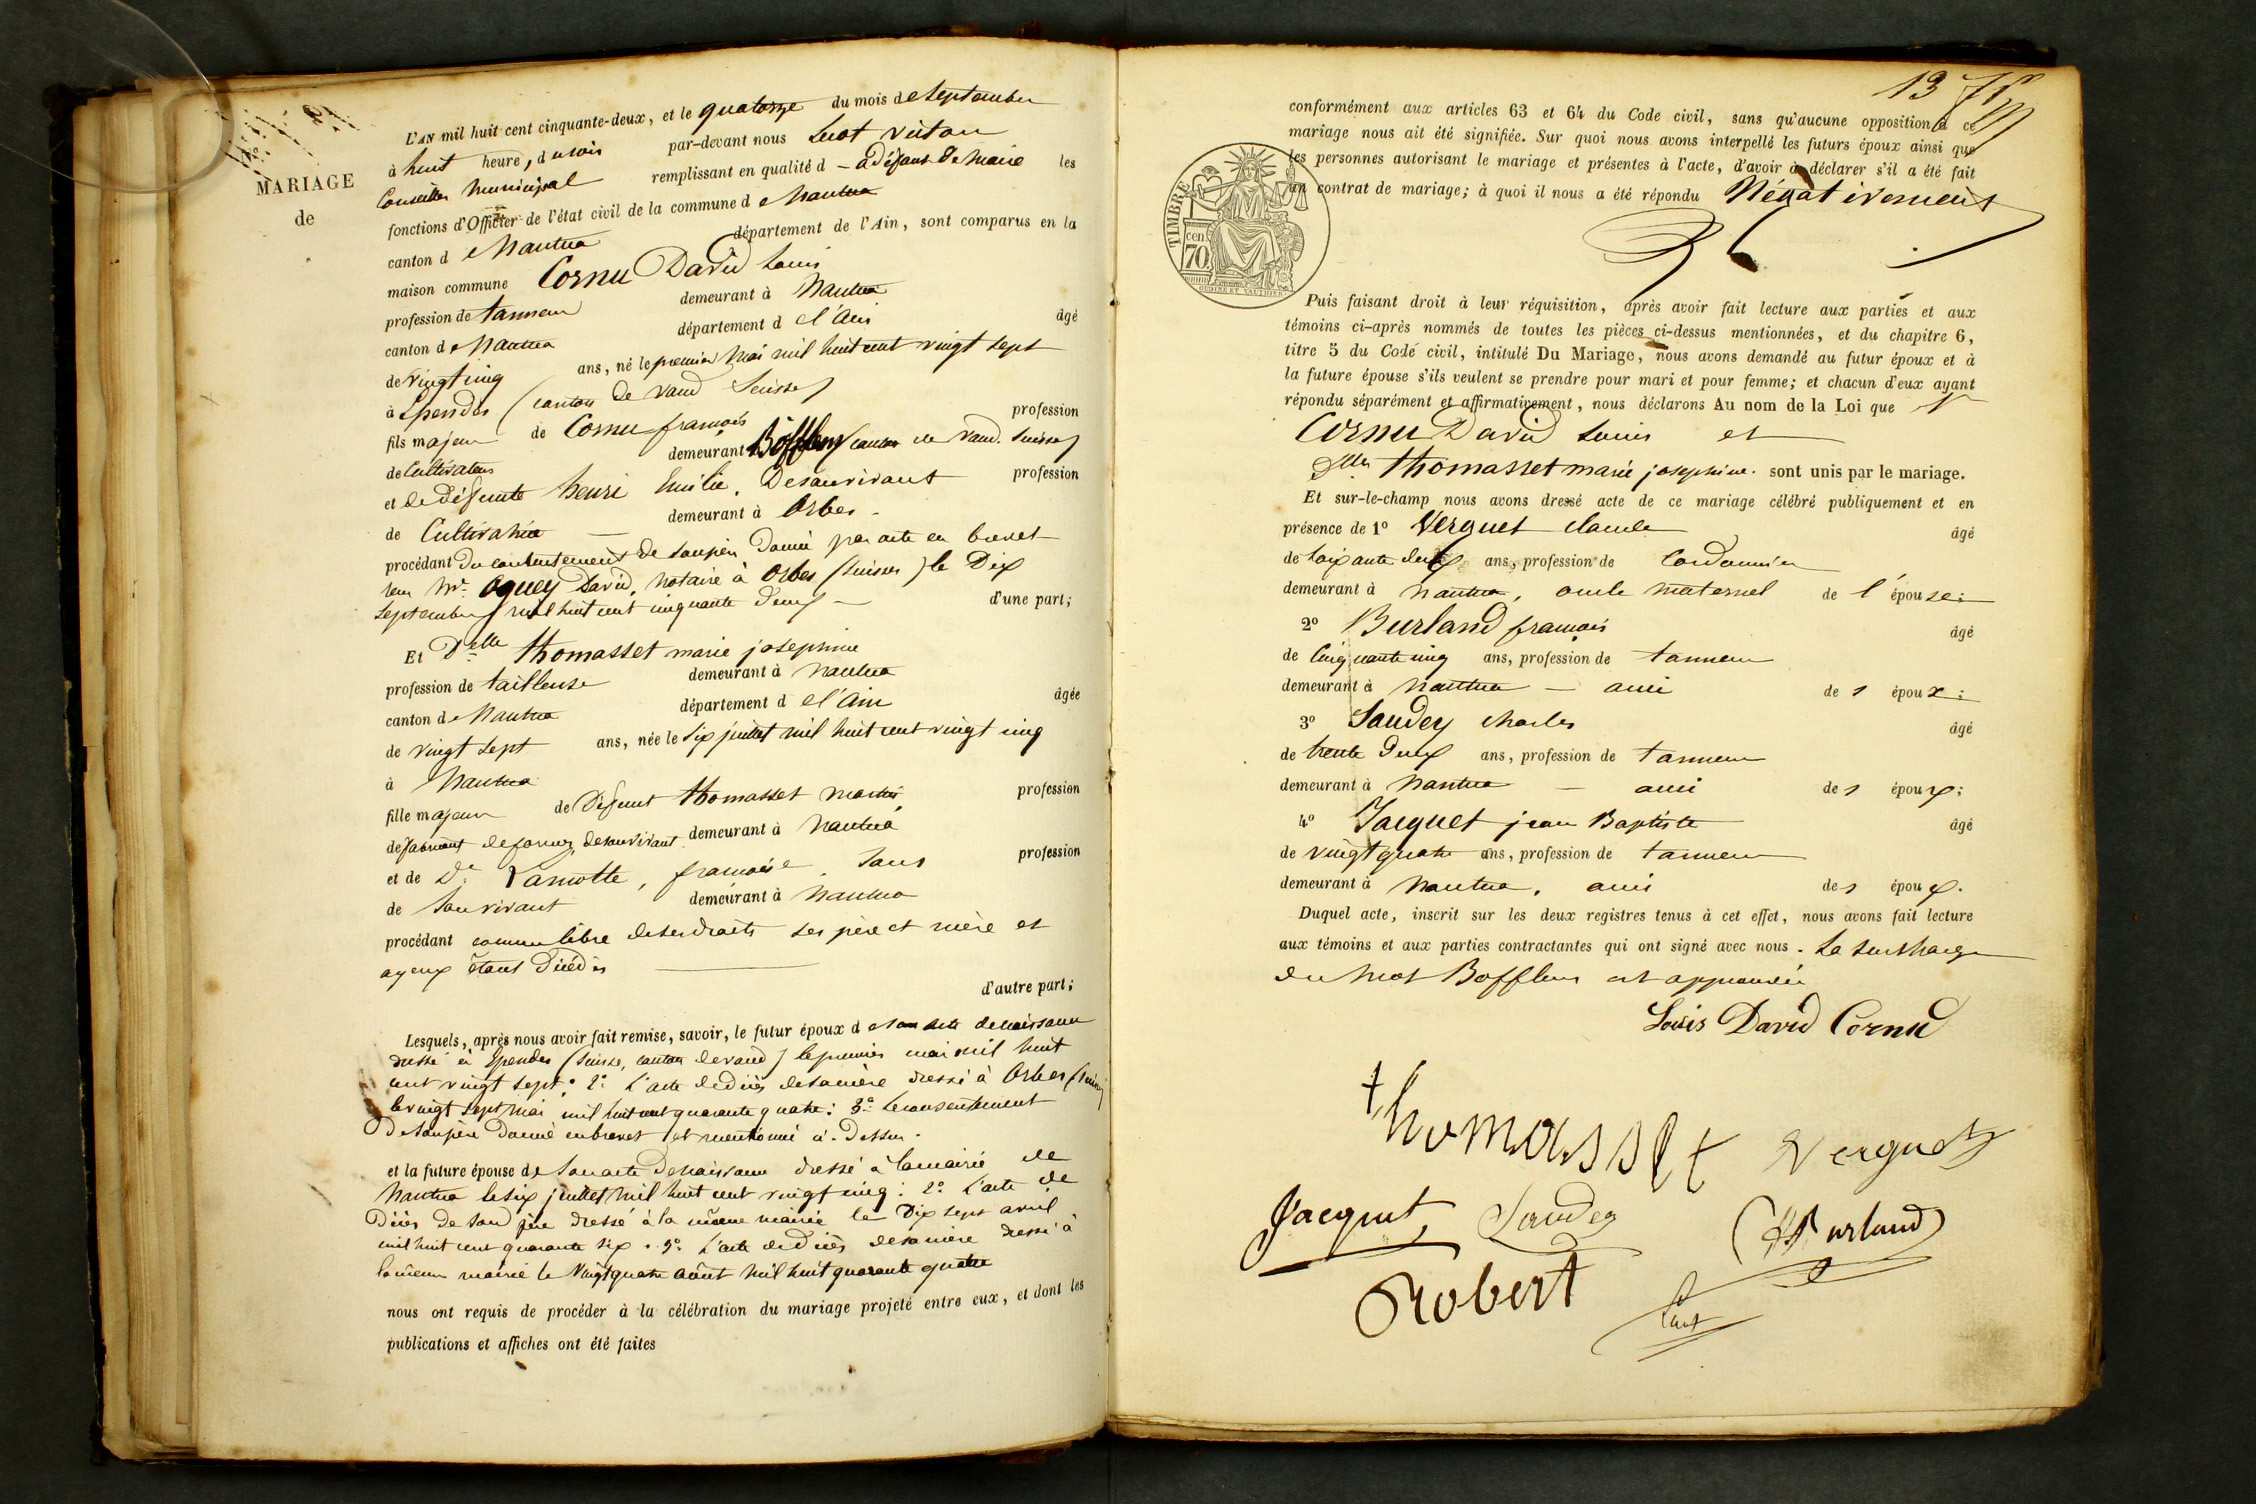 MARIAGE
de
L'AN mil huit cent cinquante-deux, et le quatorze du mois de septembre
à huit heure, du soir par-devant nous
Conseiller Municipal remplissant en qualité d - à défaut de Maire les
fonctions d'Officier de l'état civil de la commune de Nantua
canton de Nantua département de l'Ain, sont comparus en la
maison commune Cornu David Louis
profession de tanneur demeurant à Nantua
canton de Nantua département de l'Ain âgé
de vingt cinq ans, né le premier Mai mil huit cent vingt sept
à Ependes (canton de Vaud Suisse)
fils majeur de Cornu françois profession
de Cultivateur demeurant Bofflens (canton de Vaud. Suisse)
et de défunte henri Emilie. De son vivant profession
de Cultivatrice demeurant à Orbes -
procédant du consentement de son père Donné par acte en brevet
reçu Mr. Oguey David, notaire à Orbes (Suisse) le Dix
septembre mil huit cent cinquante deux — d'une part;
Et Delle thomasset marie josephine
profession de tailleuse demeurant à Nantua
canton de Nantua département de l'Ain âgée
de vingt sept ans, née le six juillet mil huit cent vingt cinq
à Nantua
fille majeure de Défunt thomasset profession
de fabricant de formes de son vivant demeurant à Nantua
et de De Lamotte, françoise. Sans profession
de son vivant demeurant à Nantua
procédant comme libre de ses droits ses père et mère et
ayeux étant Décédés
d'autre part;
Lesquels, après nous avoir fait remise, savoir, le futur époux de son acte de naissance
dressé à Ependes (Suisse, canton de vaud) le premier mai mil huit
cent vingt sept: 2° L'acte de décès de sa mère dressé à Orbes (Suisse)
le vingt sept mai mil huit cent quarante quatre: 3° Le consentement
De son père Donné en brevet et mentionné ci-Dessus.
et la future épouse de Son acte De naissance dressé à la mairie de
Nantua le six juillet mil huit cent vingt cinq: 2° L'acte de
Décès de son père dressé à la même mairie le Dix sept avril
mil huit cent quarante six. 3° L'acte de décès de sa mère dressé à
la même mairie le Vingt quatre août mil huit quarante quatre
nous ont requis de procéder à la célébration du mariage projeté entre eux, et dont les
publications et affiches ont été faites
13
conformément aux articles 63 et 64 du Code civil, sans qu'aucune opposition à ce
mariage nous ait été signifiée. Sur quoi nous avons interpellé les futurs époux ainsi que
les personnes autorisant le mariage et présentes à l'acte, d'avoir à déclarer s'il a été fait
un contrat de mariage; à quoi il nous a été répondu Négativement
TIMBRE
cen
70
Puis faisant droit à leur réquisition, après avoir fait lecture aux parties et aux
témoins ci-après nommés de toutes les pièces ci-dessus mentionnées, et du chapitre 6,
titre 5 du Code civil, intitulé Du Mariage, nous avons demandé au futur époux et à
la future épouse s'ils veulent se prendre pour mari et pour femme; et chacun d'eux ayant
répondu séparément et affirmativement, nous déclarons Au nom de la Loi que
Cornu David Louis et
Delle thomasset marie josephine. sont unis par le mariage.
Et sur-le-champ nous avons dressé acte de ce mariage célébré publiquement et en
présence de 1° Verguet Claude âgé
de Soixante deux ans, profession de Cordonnier
demeurant à Nantua, oncle maternel de l'épouse:
2° Burland françois âgé
de Cinquante cinq ans, profession de tanneur
demeurant à Nantua — ami de l'époux:
3° Landey Charles âgé
de trente Deux ans, profession de tanneur
demeurant à Nantua — ami de l'époux:
4° Jacquet jean Baptiste âgé
de vingt quatre ans, profession de tanneur
demeurant à Nantua. ami de l'époux.
Duquel acte, inscrit sur les deux registres tenus à cet effet, nous avons fait lecture
aux témoins et aux parties contractantes qui ont signé avec nous. La surcharge
du mot Bofflens est approuvée
Louis David Cornu
thomasset Verguet
Jacquet Landey Burland
Robert